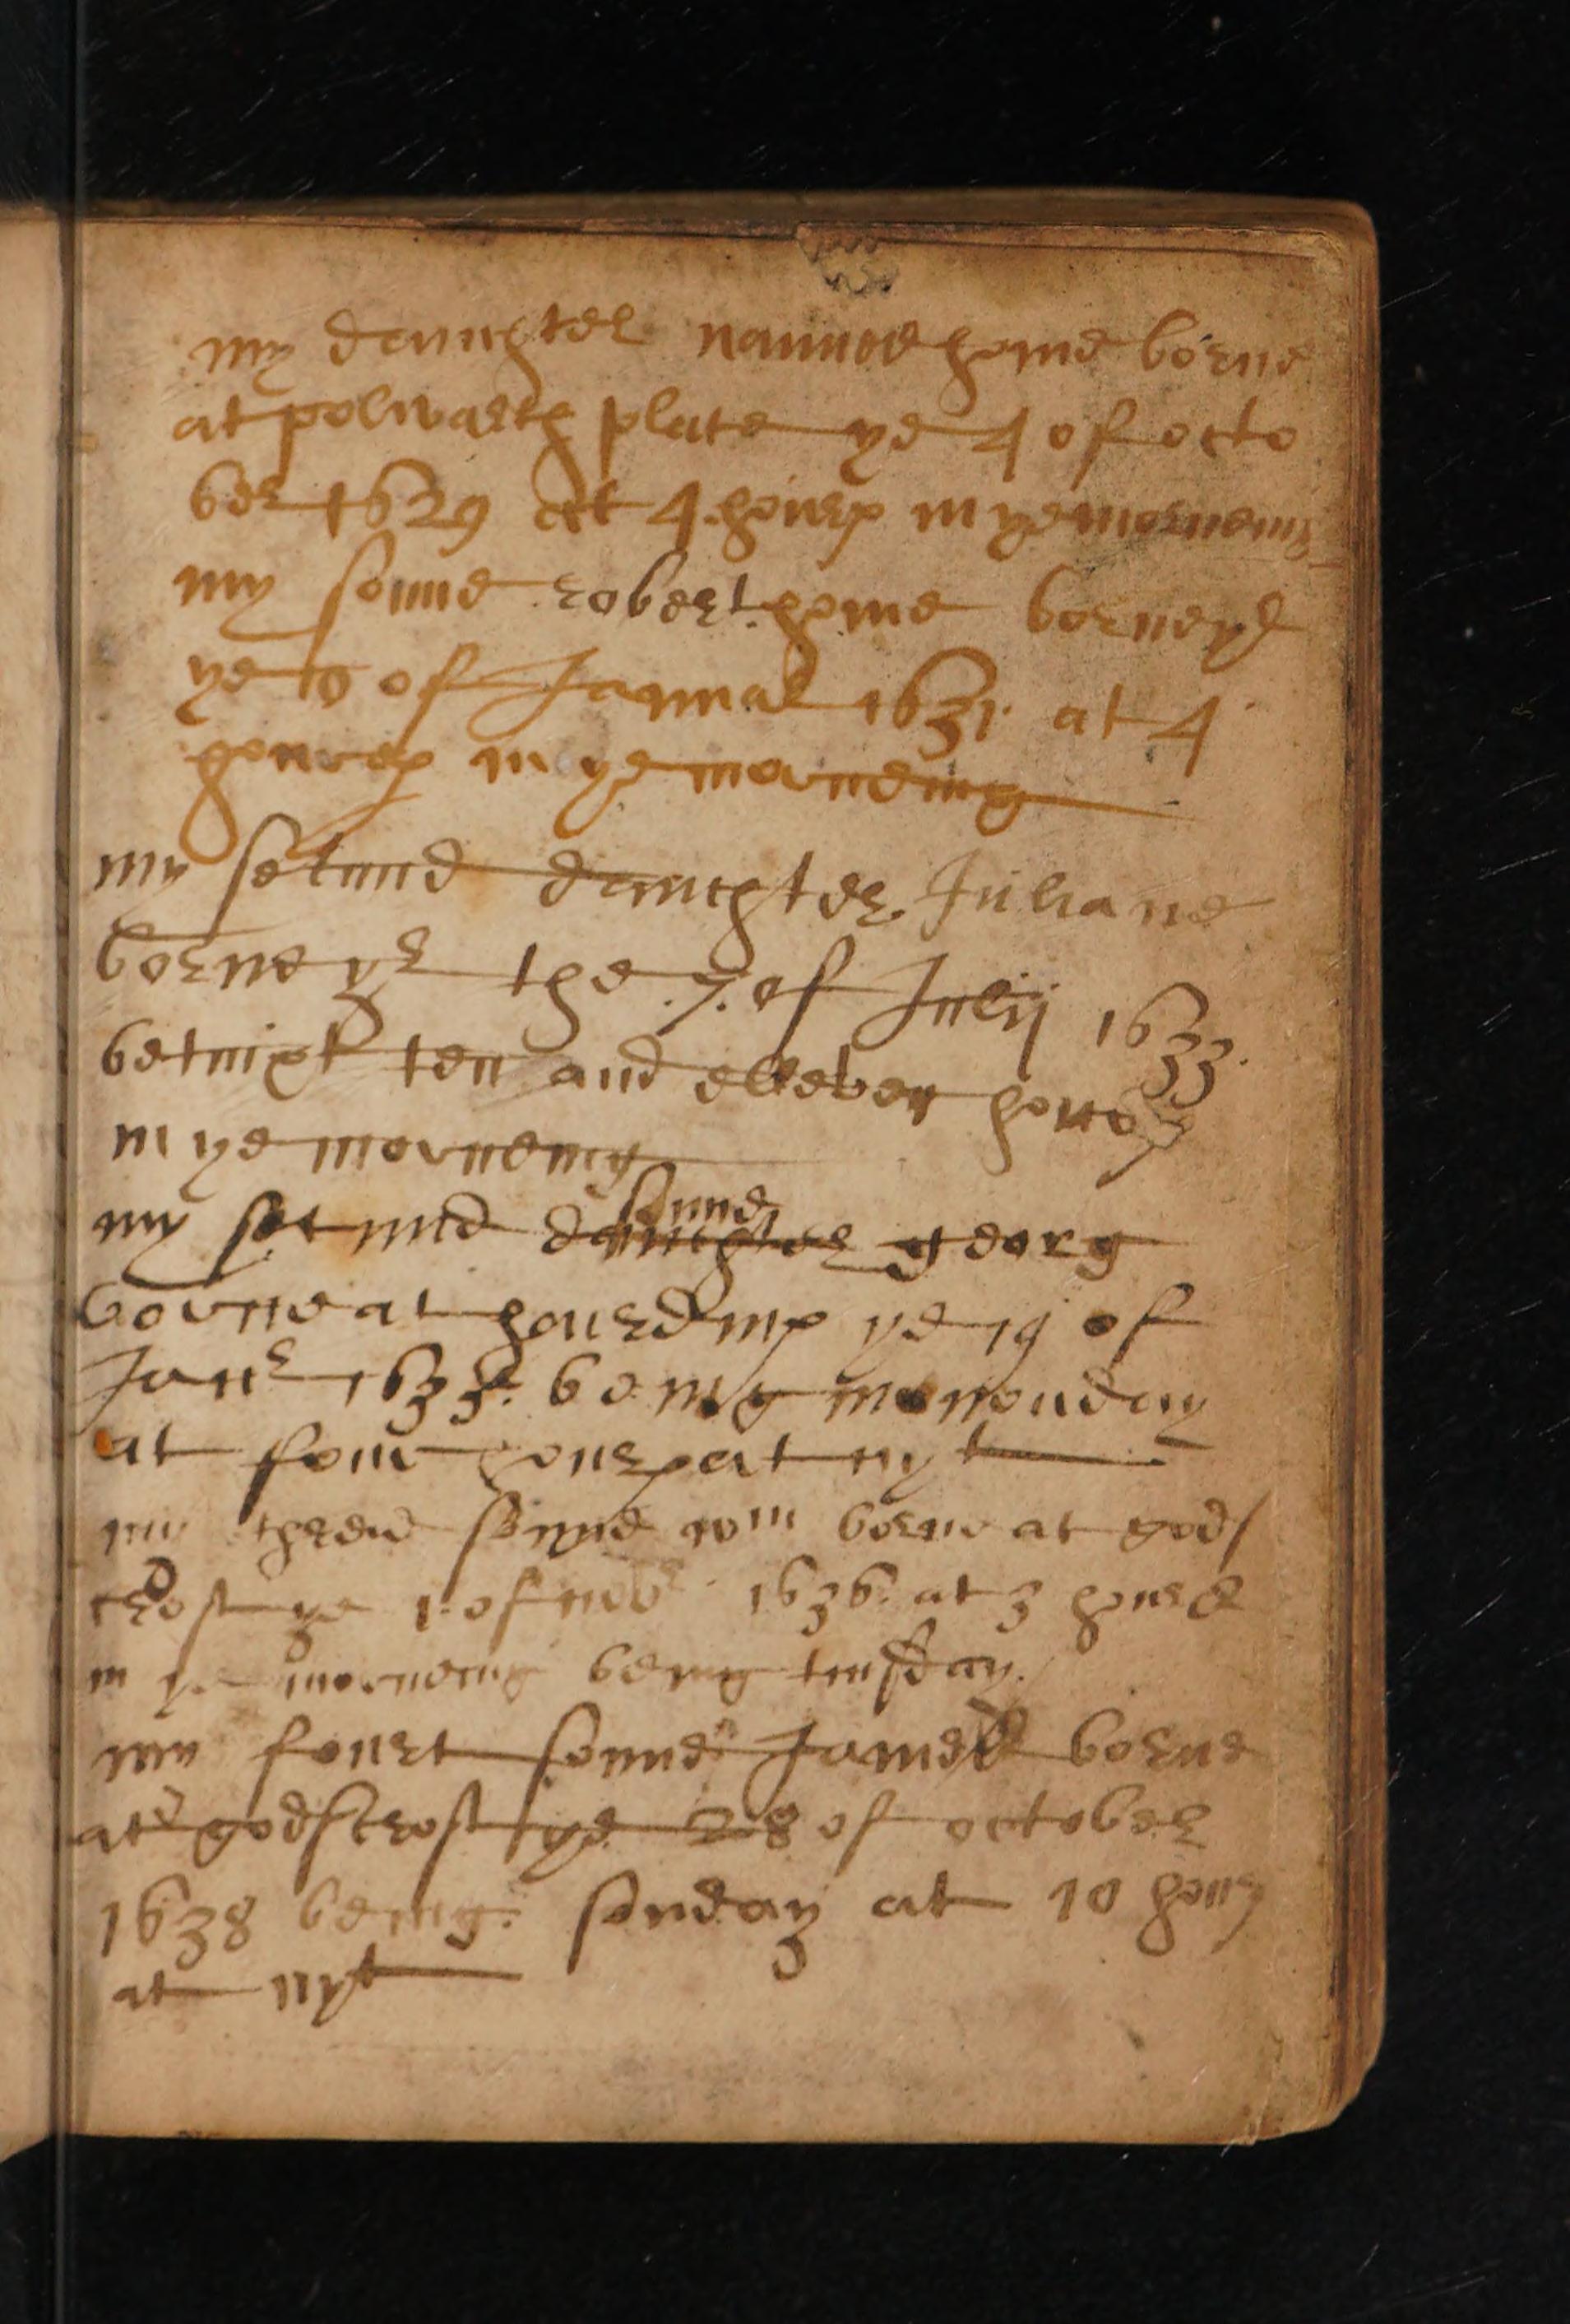 my dauchter nannoe home borne
at polwarth place ye 4 of octo
ber 1629 at 4 hours in ye morneing
my sonne robert home borne yr
ye of Januar 1631 at 4
houres in ye morneing
my secund dauchter Juliane
borne yr the 7 of Julij 1633
betuixt ten and elleven houres
in ye morneing
my secund dauchter sonne georg
borne at hourdings ye 19 of
Janr being monenday
at four hours at nyt
my threid sonne wm borne at gods
croft ye 1 of novr 1636 at 3 houres
in ye morneing being tuisday
my fourt sonne James borne
at godscroft ye 28 of october
1638 being sonday at 10 hours
at nyt